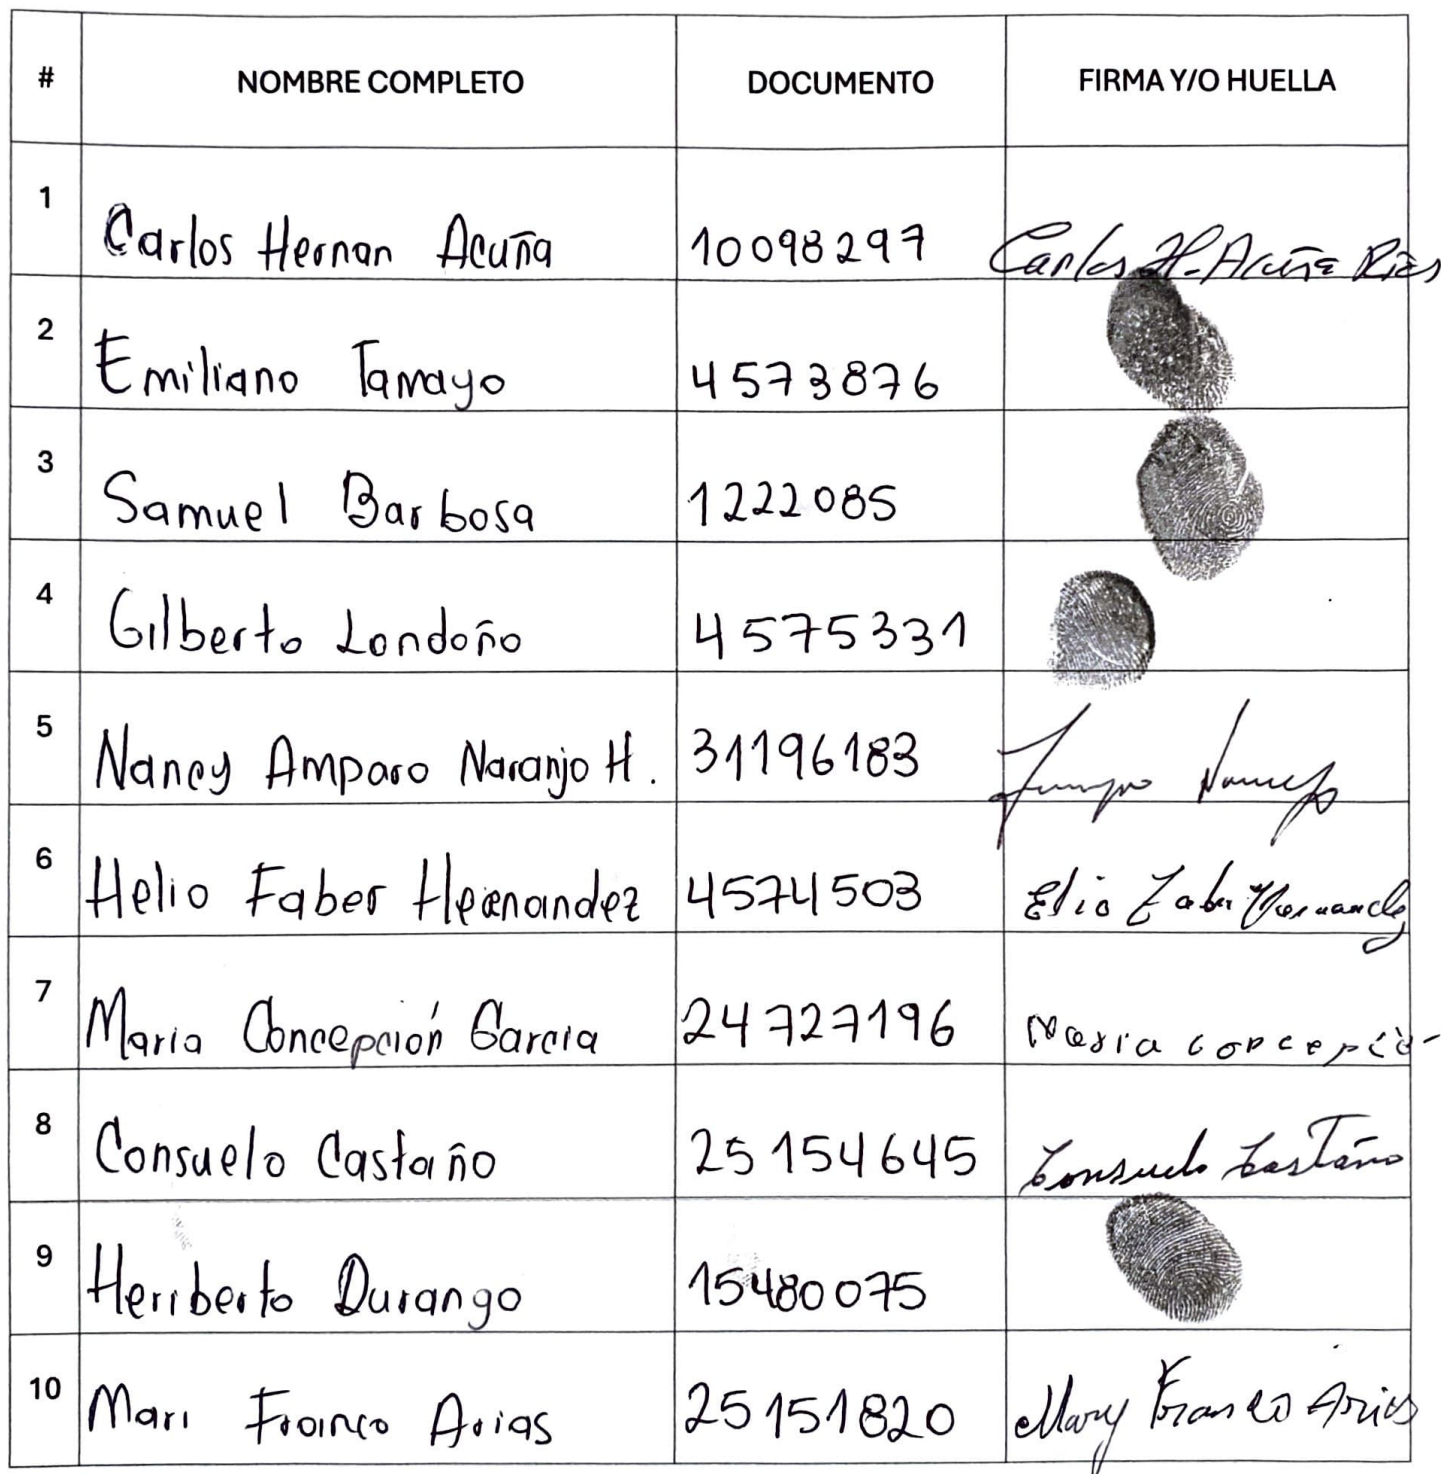 # NOMBRE COMPLETO DOCUMENTO FIRMA Y/O HUELLA
1 Carlos Hernan Acuña 10098297 Carlos H. Acuña Rios
2 Emiliano Tamayo 4573876
3 Samuel Barbosa 1222085
4 Gilberto Londoño 4575331
5 Nancy Amparo Naranjo H. 31196183
6 Helio Faber Hernandez 4574503 Elio Faber Hernandez
7 Maria Concepción Garcia 24727196 Maria concepció
8 Consuelo Castaño 25154645 Consuelo Castaño
9 Heriberto Durango 15480075
10 Mari Franco Arias 25151820 Mary Franco Arias